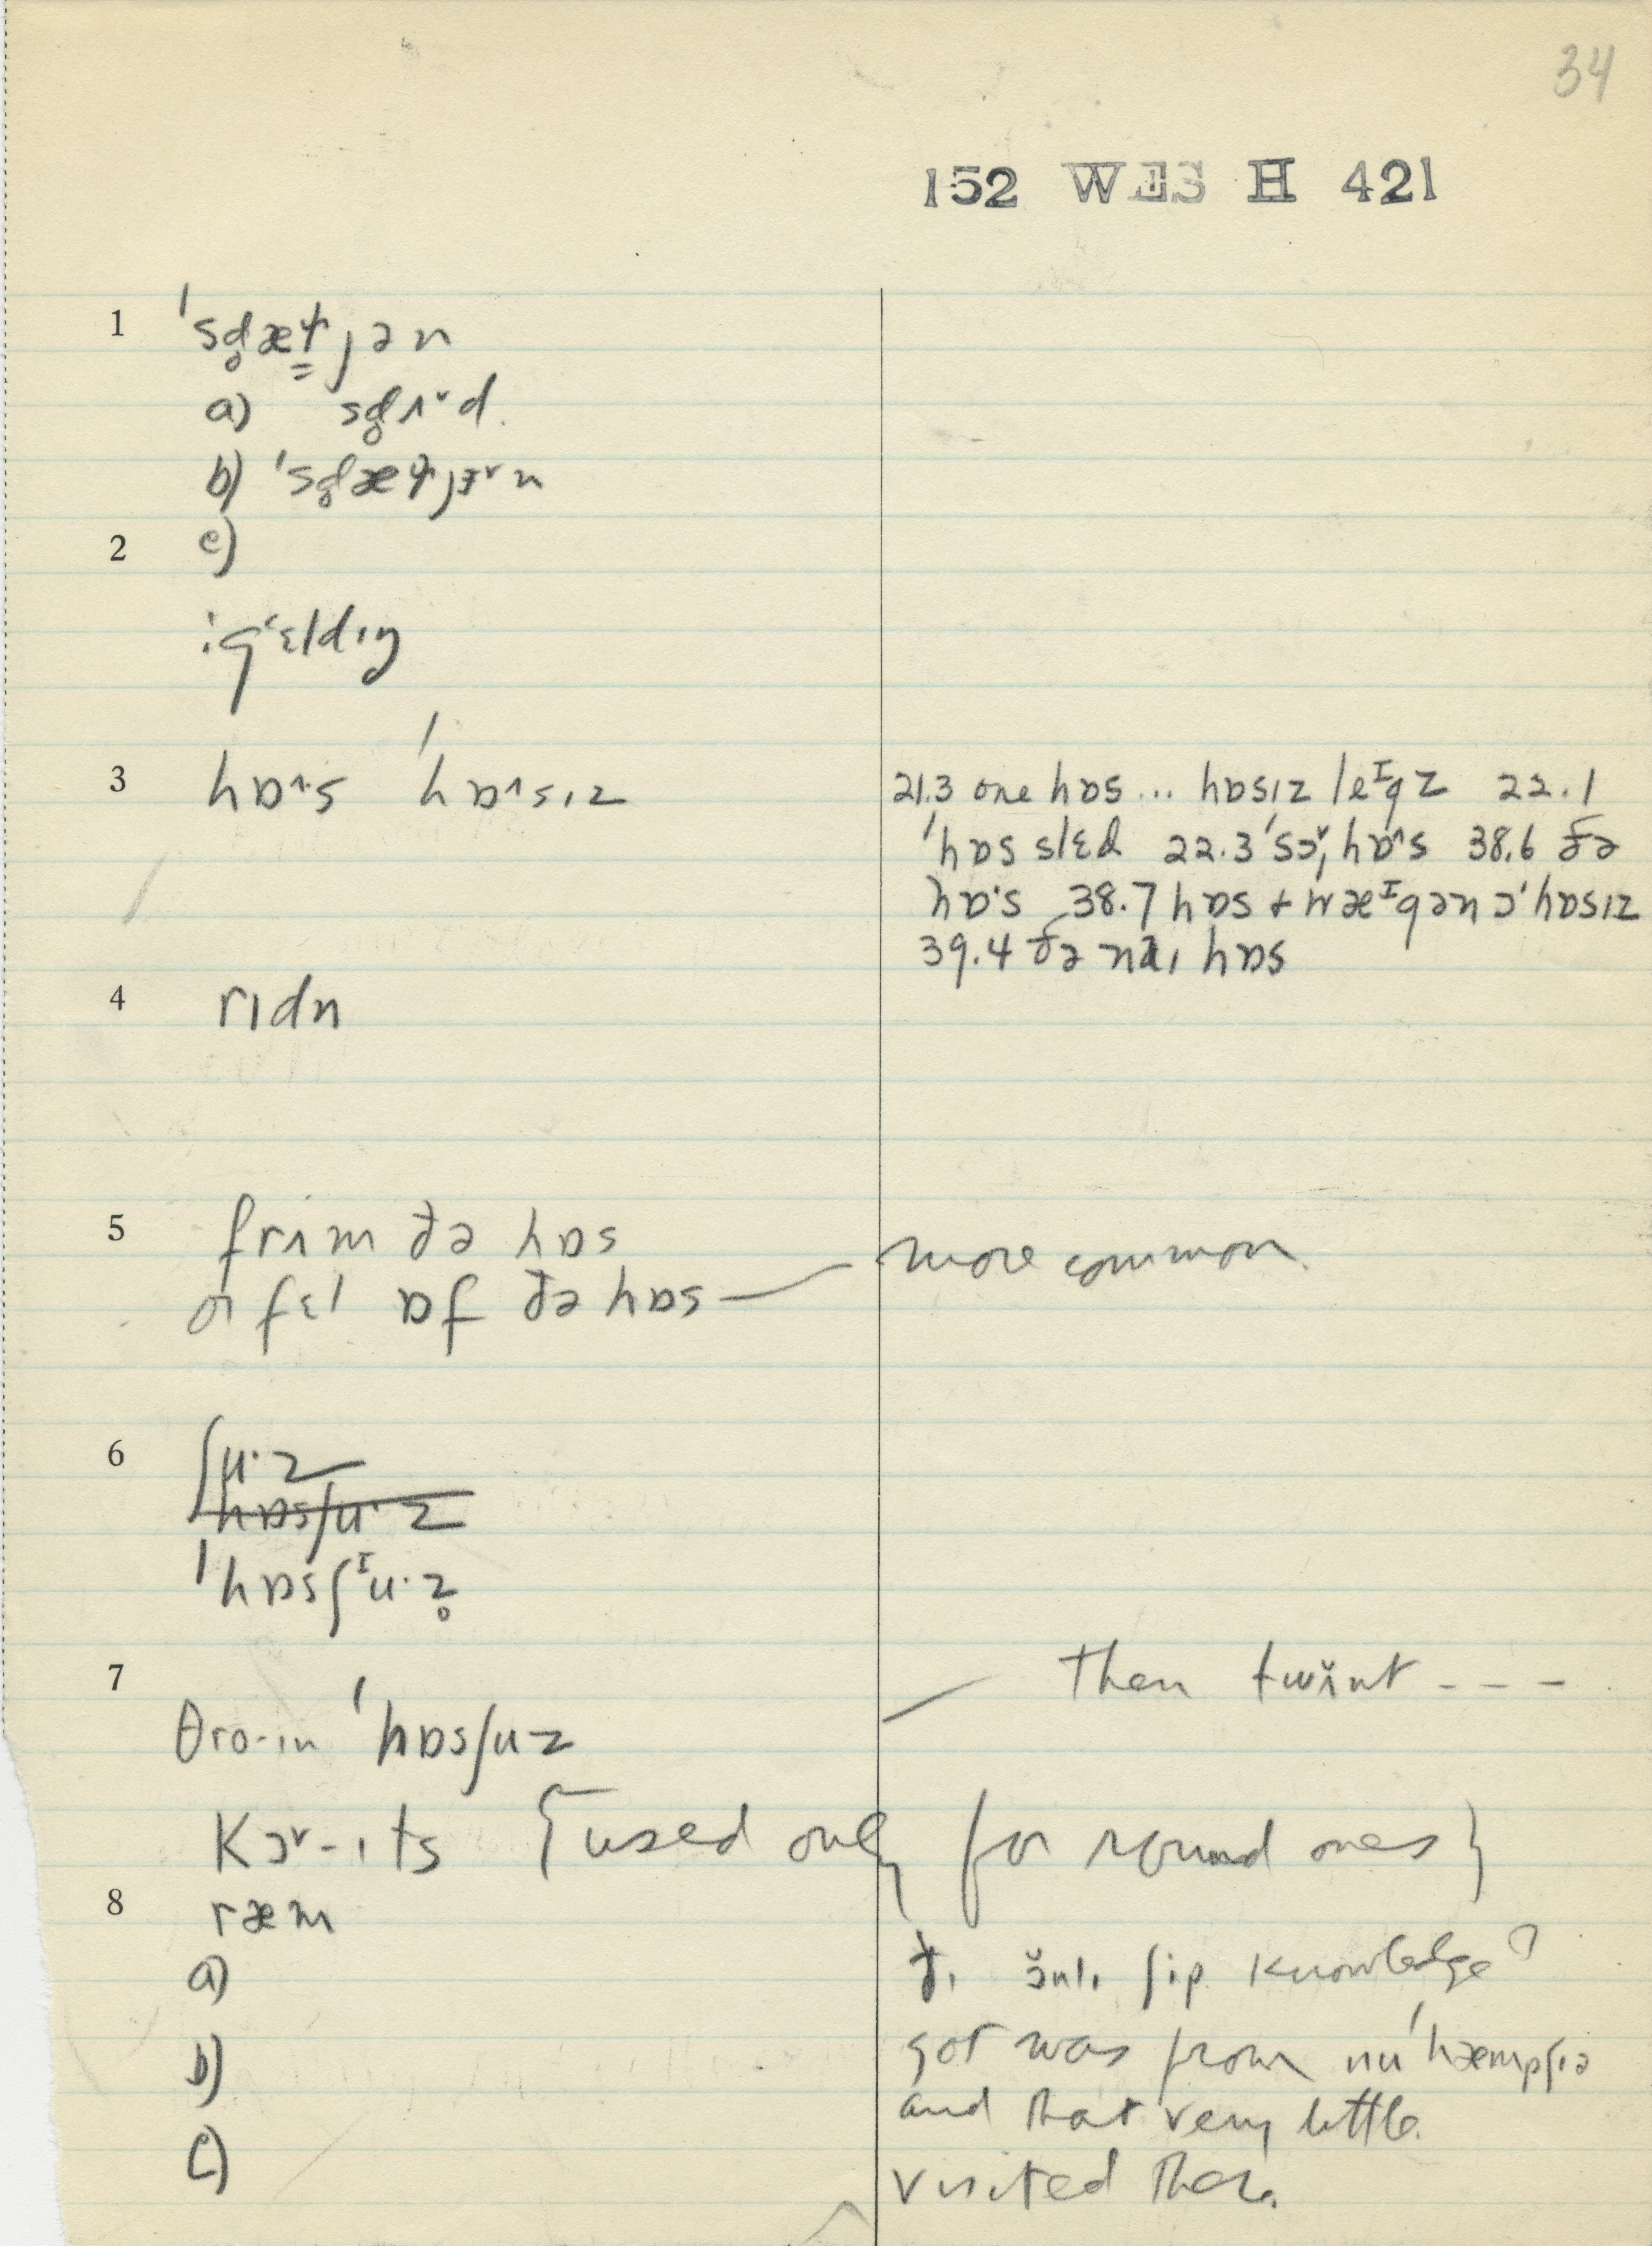 34
152 WES H 421
1 ˈsd̥æɬjən
a) sd̥ʌ˅d.
b) ˈsd̥æɬjɜ˅n
2 c)
3 hɒ˄·s ˈhɒ˄sɪz
21.3 one hɒs ... hɒsɪz leᴵgz 22.1
ˈhɒs slɛd 22.3 ˈsɔ˅ˌhɒ˄s 38.6 ðə
hɒ·s 38.7 hɒs + wæᴵgən ɔˈhɒsɪz
39.4 ðə naɪ hɒs
4 rɪdn
5 frɪm ðə hɒs
fɛl ɒf ðə hɒs — more common.
6 ʃu·z
hɒsʃu·z
ˈhɒsʃᴵu·z̥
7 — then twɪnt - - -
θro-ɪn ˈhɒsʃuz
Kɔ˅-ɪts {used only for round ones}
8 ræm
a) ðɪ ɔ̆nlɪ ʃip knowledge
b) got was from nuˈhæmpʃɪə
and that very little.
c) visited there.